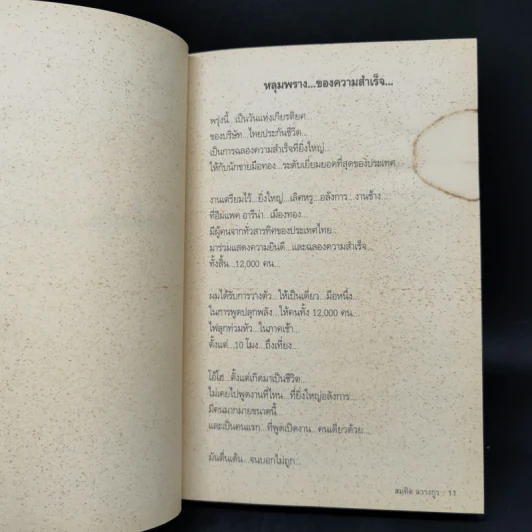 หลุมพราง...ของความสำเร็จ...
พรุ่งนี้...เป็นวันแห่งเกียรติยศ
ของบริษัท...ไทยประกันชีวิต...
เป็นการฉลองความสำเร็จที่ยิ่งใหญ่...
ให้กับนักขายมือทอง...ระดับเยี่ยมยอดที่สุดของประเทศ...
งานเตรียมไว้...ยิ่งใหญ่...เลิศหรู...อลังการ...งานช้าง...
ที่อิมแพค อารีน่า...เมืองทอง...
มีผู้คนจากทั่วสารทิศของประเทศไทย...
มาร่วมแสดงความยินดี...และฉลองความสำเร็จ...
ทั้งสิ้น...12,000 คน...
ผมได้รับการวางตัว...ให้เป็นเดี่ยว...มือหนึ่ง...
ในการพูดปลุกพลัง...ให้คนทั้ง 12,000 คน...
ไฟลุกท่วมหัว...ในภาคเช้า...
ตั้งแต่...10 โมง...ถึงเที่ยง...
โอ้โฮ...ตั้งแต่เกิดมาเป็นชีวิต...
ไม่เคยไปพูดงานที่ไหน...ที่ยิ่งใหญ่อลังการ...
มีคนมากมายขนาดนี้
และเป็นคนแรก...ที่พูดเปิดงาน...คนเดียวด้วย...
มันตื่นเต้น...จนบอกไม่ถูก...
11